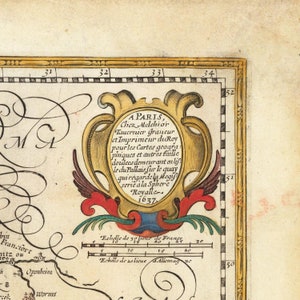 31 32 33 34
52
M A
A PARIS,
Chez Melchior
Tauernier graueur
et Imprimeur du Roy
pour les Cartes geogra
phiques et autres taille
doulces demeurant en l'Isle
du Pallais sur le quay
qui regarde la Megiss
erie a la Sphere
Royalle.
1637.
51
Eschelle de France
Eschelle de
Openheim
50